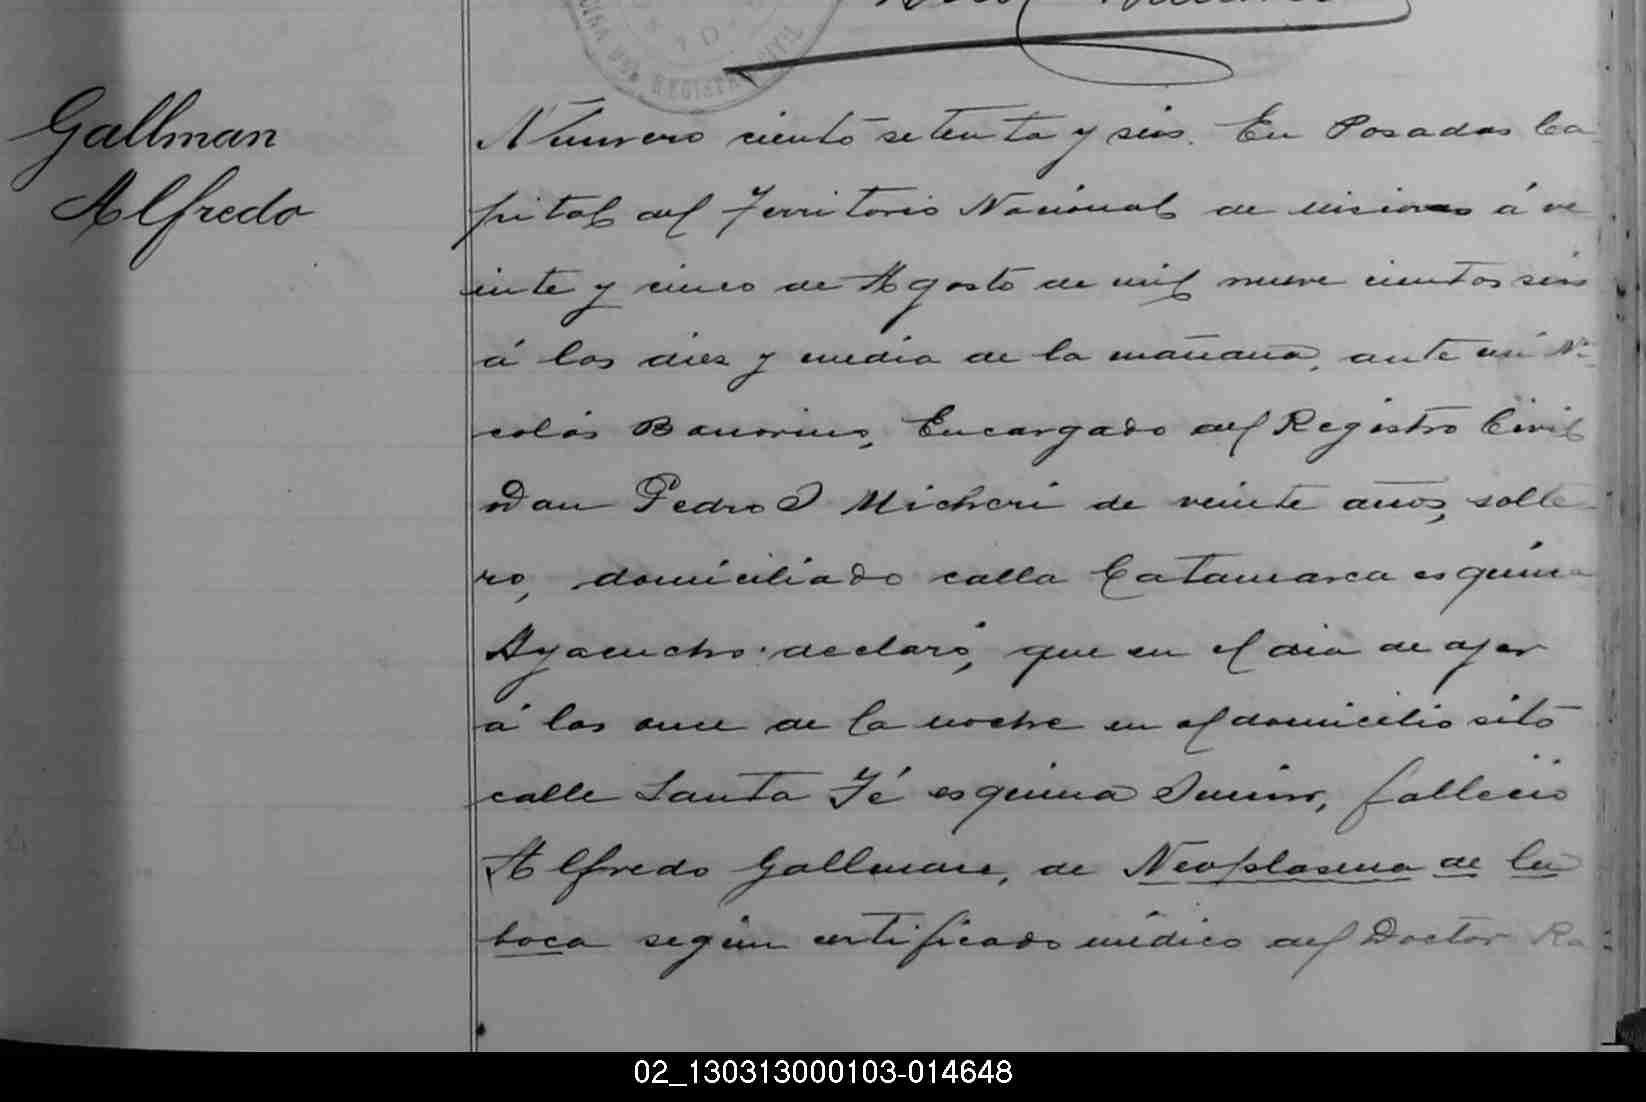 Gallman
Alfredo
Número ciento setenta y seis. En Posadas Ca
pital del Territorio Nacional de Misiones á ve
inte y cinco de Agosto de mil nueve cientos seis
á las diez y media de la mañana, ante mi Ni
colás Encargado del Registro Civil
Don Pedro J Micheri de veinte años, solte
ro, domiciliado calla Catamarca esquina
Ayacucho declaró, que en el dia de ayer
á las once de la noche en el domicilio sito
calle Santa Fé esquina Junin, fallecio
Alfredo Gallman, de Neoplasma de la
boca según certificado médico del Doctor Ra
02_130313000103-014648